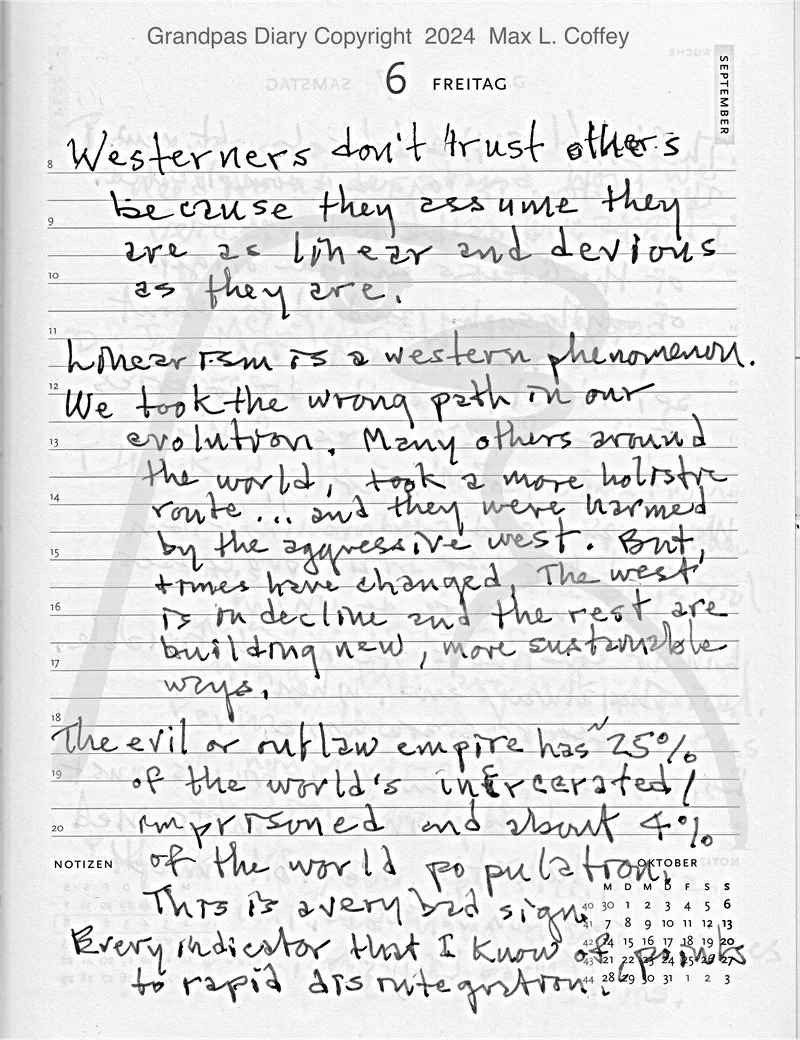 Grandpas Diary Copyright 2024 Max L. Coffey
6 FREITAG
SEPTEMBER
8 Westerners don't trust others
because they assume they
9 are as linear and devious
10 as they are.
11
Linearism is a western phenomenon.
12 We took the wrong path in our
13 evolution. Many others around
the world, took a more holistic
14 route... and they were harmed
by the aggressive west. But,
15 times have changed. The west
16 is in decline and the rest are
building new, more sustainable
17 ways.
18 The evil or outlaw empire has ~25%
19 of the world's incercerated/
20 imprisoned and about 4%
NOTIZEN of the world population.
This is a very bad sign.
Every indicator that I know of, points
to rapid disintegration.
OKTOBER
M D M D F S S
40 30 1 2 3 4 5 6
41 7 8 9 10 11 12 13
42 14 15 16 17 18 19 20
43 21 22 23 24 25 26 27
44 28 29 30 31 1 2 3